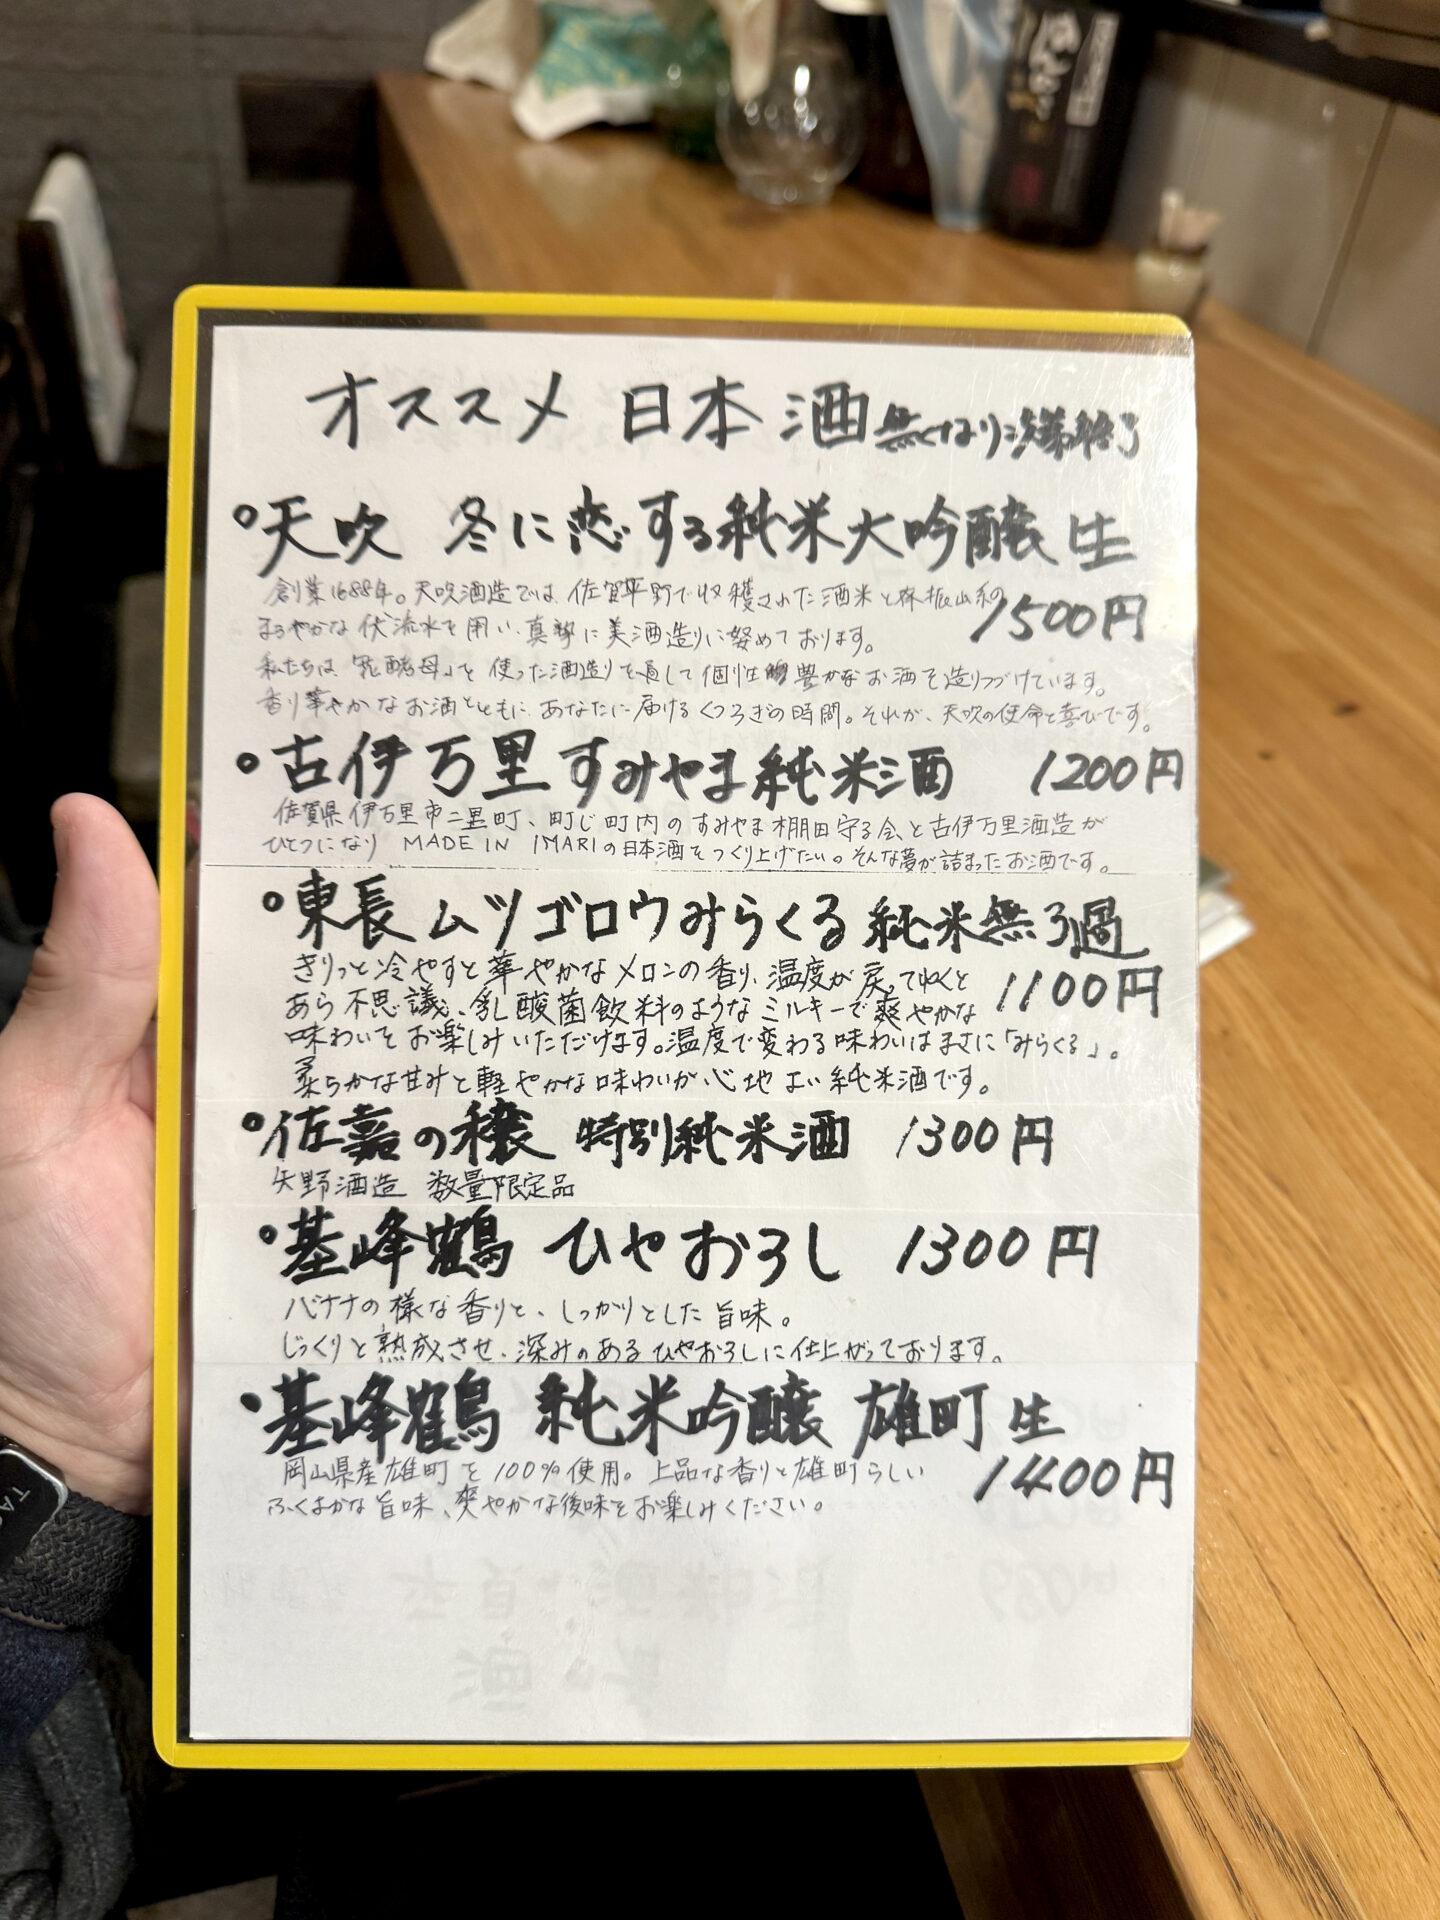 オススメ 日本酒 無くなり次第終了
。天吹 冬に恋する純米大吟醸 生
創業1688年。天吹酒造では、佐賀平野で収穫された酒米と脊振山系の
1500円
まろやかな伏流水を用い、真摯に美酒造りに努めております。
私たちは「花酵母」を使った酒造りを通して個性豊かなお酒を造りつづけています。
香り華やかなお酒とともに、あなたに届けるくつろぎの時間。それが、天吹の使命と喜びです。
。古伊万里 すみやま 純米酒 1200円
佐賀県伊万里市二里町、町じ町内のすみやま棚田守る会、と古伊万里酒造が
ひとつになり MADE IN IMARIの日本酒をつくり上げたい。そんな夢が詰まったお酒です。
。東長 ムツゴロウみらくる 純米無ろ過
きりっと冷やすと華やかなメロンの香り、温度が戻ってゆくと
1100円
あら不思議、乳酸菌飲料のようなミルキーで爽やかな
味わいをお楽しみいただけます。温度で変わる味わいはまさに「みらくる」。
柔らかな甘みと軽やかな味わいが心地よい純米酒です。
。佐嘉の穣 特別純米酒 1300円
矢野酒造 数量限定品
。基峰鶴 ひやおろし 1300円
バナナの様な香りと、しっかりとした旨味。
じっくりと熟成させ、深みのあるひやおろしに仕上がっております。
・基峰鶴 純米吟醸 雄町 生
岡山県産雄町を100%使用。上品な香りと雄町らしい
1400円
ふくよかな旨味、爽やかな後味をお楽しみください。